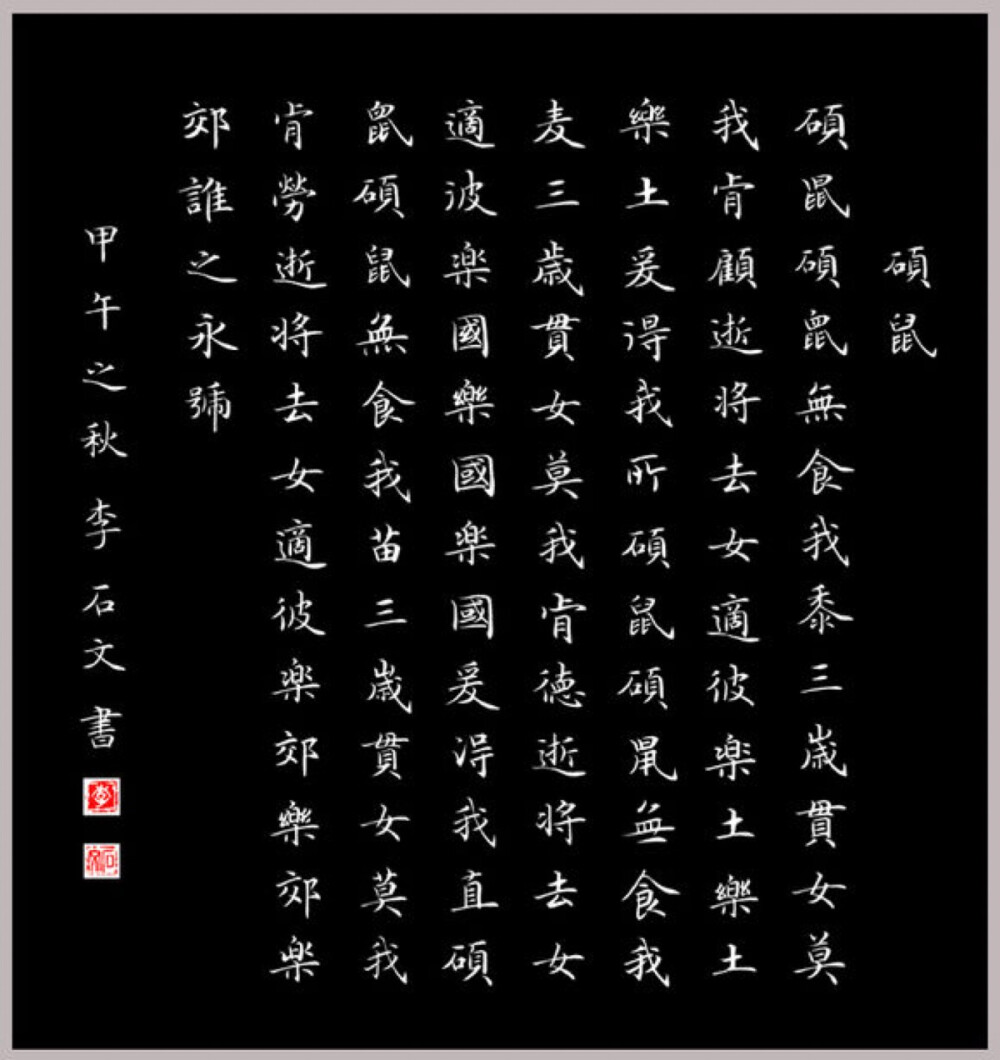 碩鼠
碩鼠碩鼠無食我黍三歲貫女莫
我肯顧逝将去女適彼楽土樂土
樂土爰得我所碩鼠碩鼠無食我
麦三歲貫女莫我肯德逝将去女
適波楽國樂國楽國爰得我直碩
鼠碩鼠無食我苗三歲貫女莫我
肯勞逝将去女適彼楽郊樂郊楽
郊誰之永號
甲午之秋李石文書
李
石文